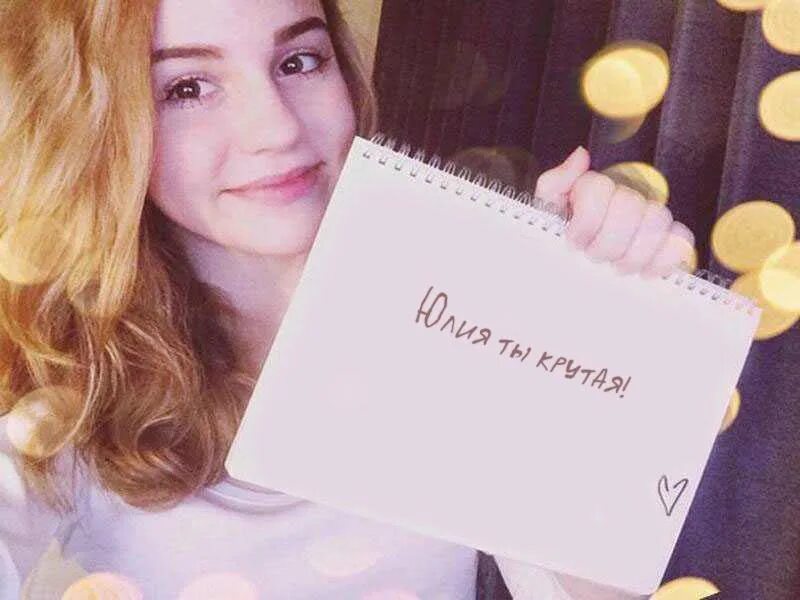 Юлия ты крутая!